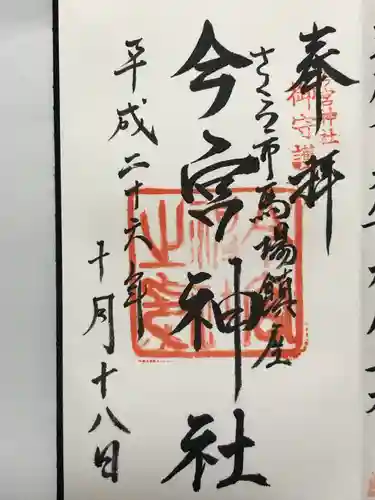 奉拝
宮神社
御守護
さくら市馬場鎮座
今宮神社
平成二十六年
十月十八日